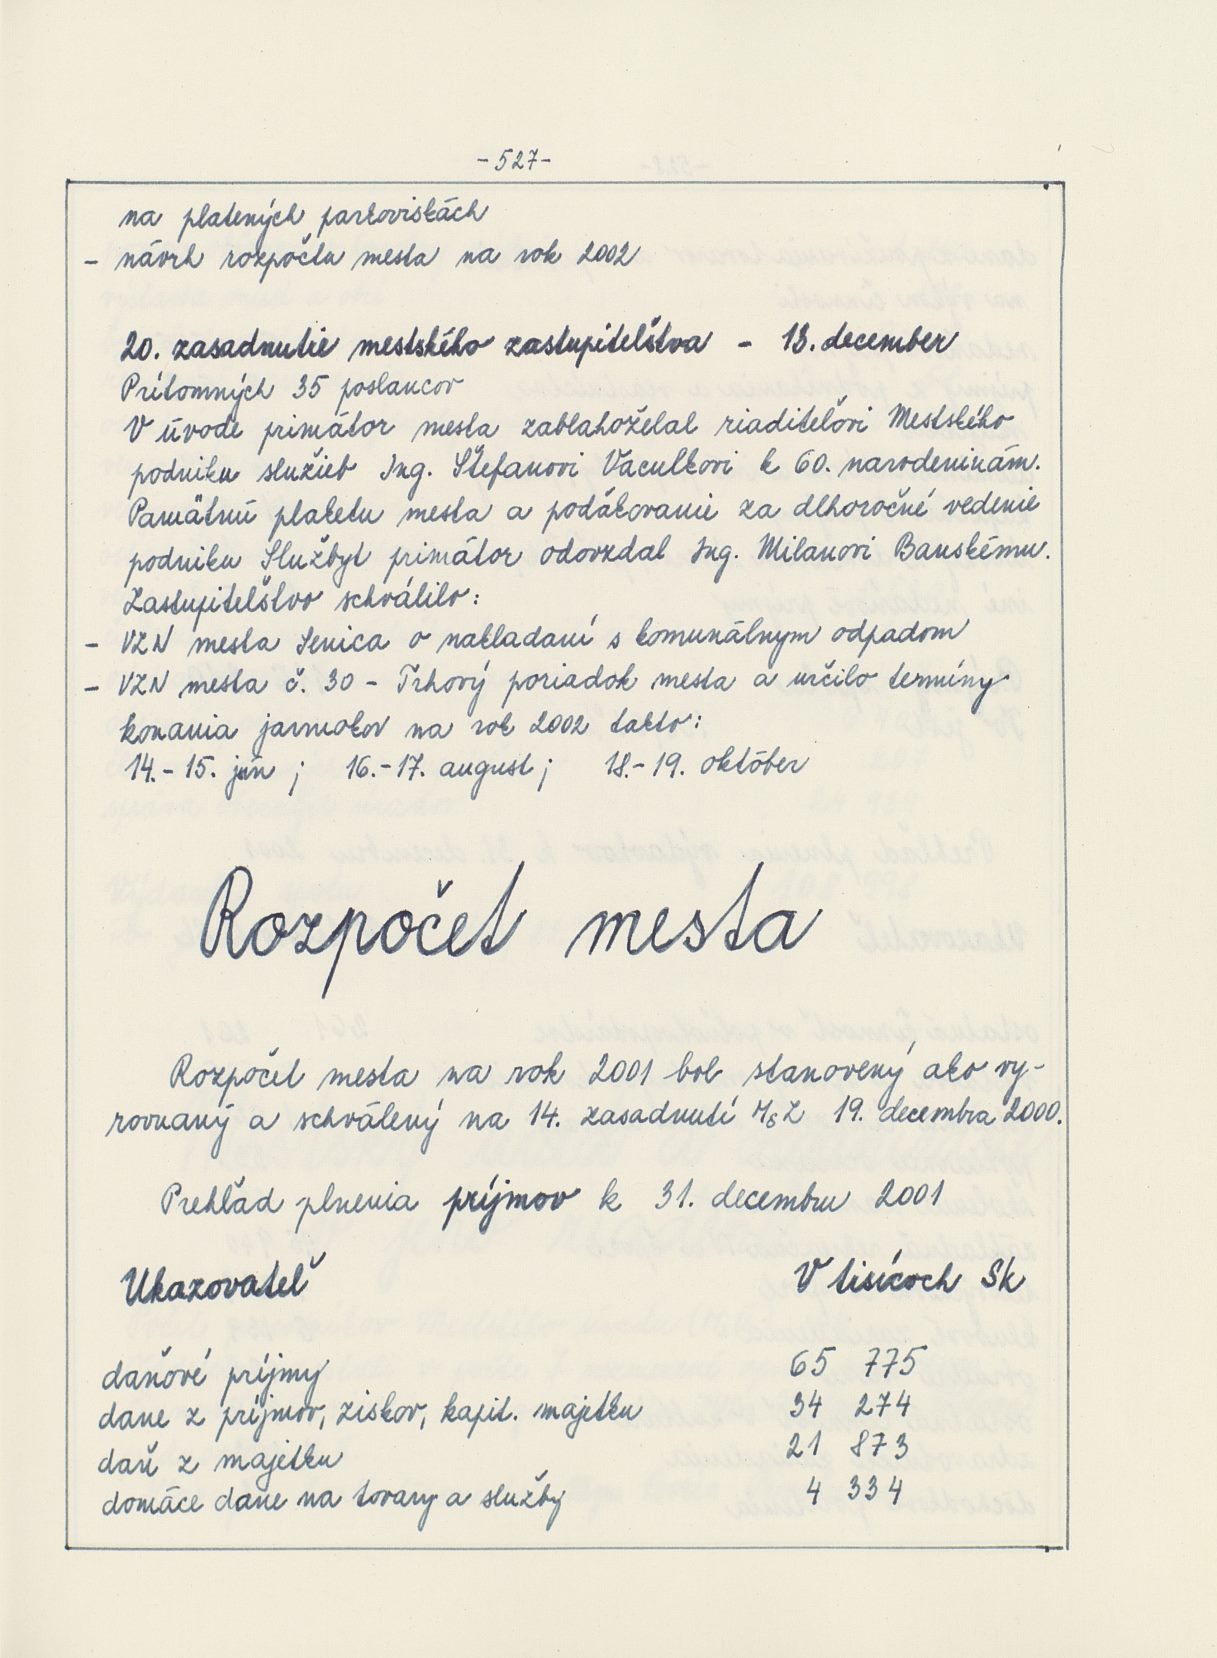 -527-
na platených parkoviskách
- návrh rozpočtu mesta na rok 2002
20. zasadnutie mestského zastupiteľstva - 13. december
Prítomných 35 poslancov
V úvode primátor mesta zablahoželal riaditeľovi Mestského
podniku služieb Ing. Štefanovi Vaculkovi k 60. narodeninám.
Pamätnú plaketu mesta a poďakovanie za dlhoročné vedenie
podniku Služby primátor odovzdal Ing. Milanovi Banskému.
Zastupiteľstvo schválilo:
- VZN mesta Senica o nakladaní s komunálnym odpadom
- VZN mesta č. 30 - Trhový poriadok mesta a určilo termíny
konania jarmokov na rok 2002 takto:
14.-15. jún; 16.-17. august; 18.-19. október
Rozpočet mesta
Rozpočet mesta na rok 2001 bol stanovený ako vy-
rovnaný a schválený na 14. zasadnutí MsZ 19. decembra 2000.
Prehľad plnenia príjmov k 31. decembru 2001
Ukazovateľ V tisícoch Sk
daňové príjmy 65 775
dane z príjmov, ziskov, kapit. majetku 34 274
daň z majetku 21 873
domáce dane na tovary a služby 4 334